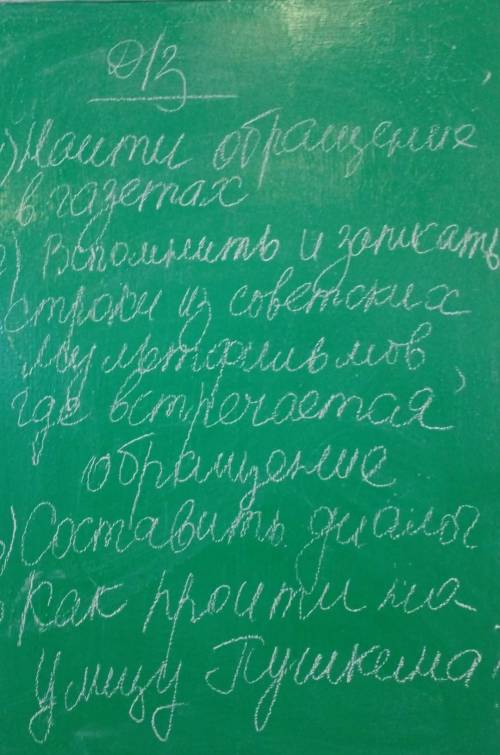 Д/З
1) Найти обращение
в газетах
2) Вспомнить и записать
строки из советских
мультфильмов,
где встречается
обращение
3) Составить диалог
"Как пройти на
улицу Пушкина"